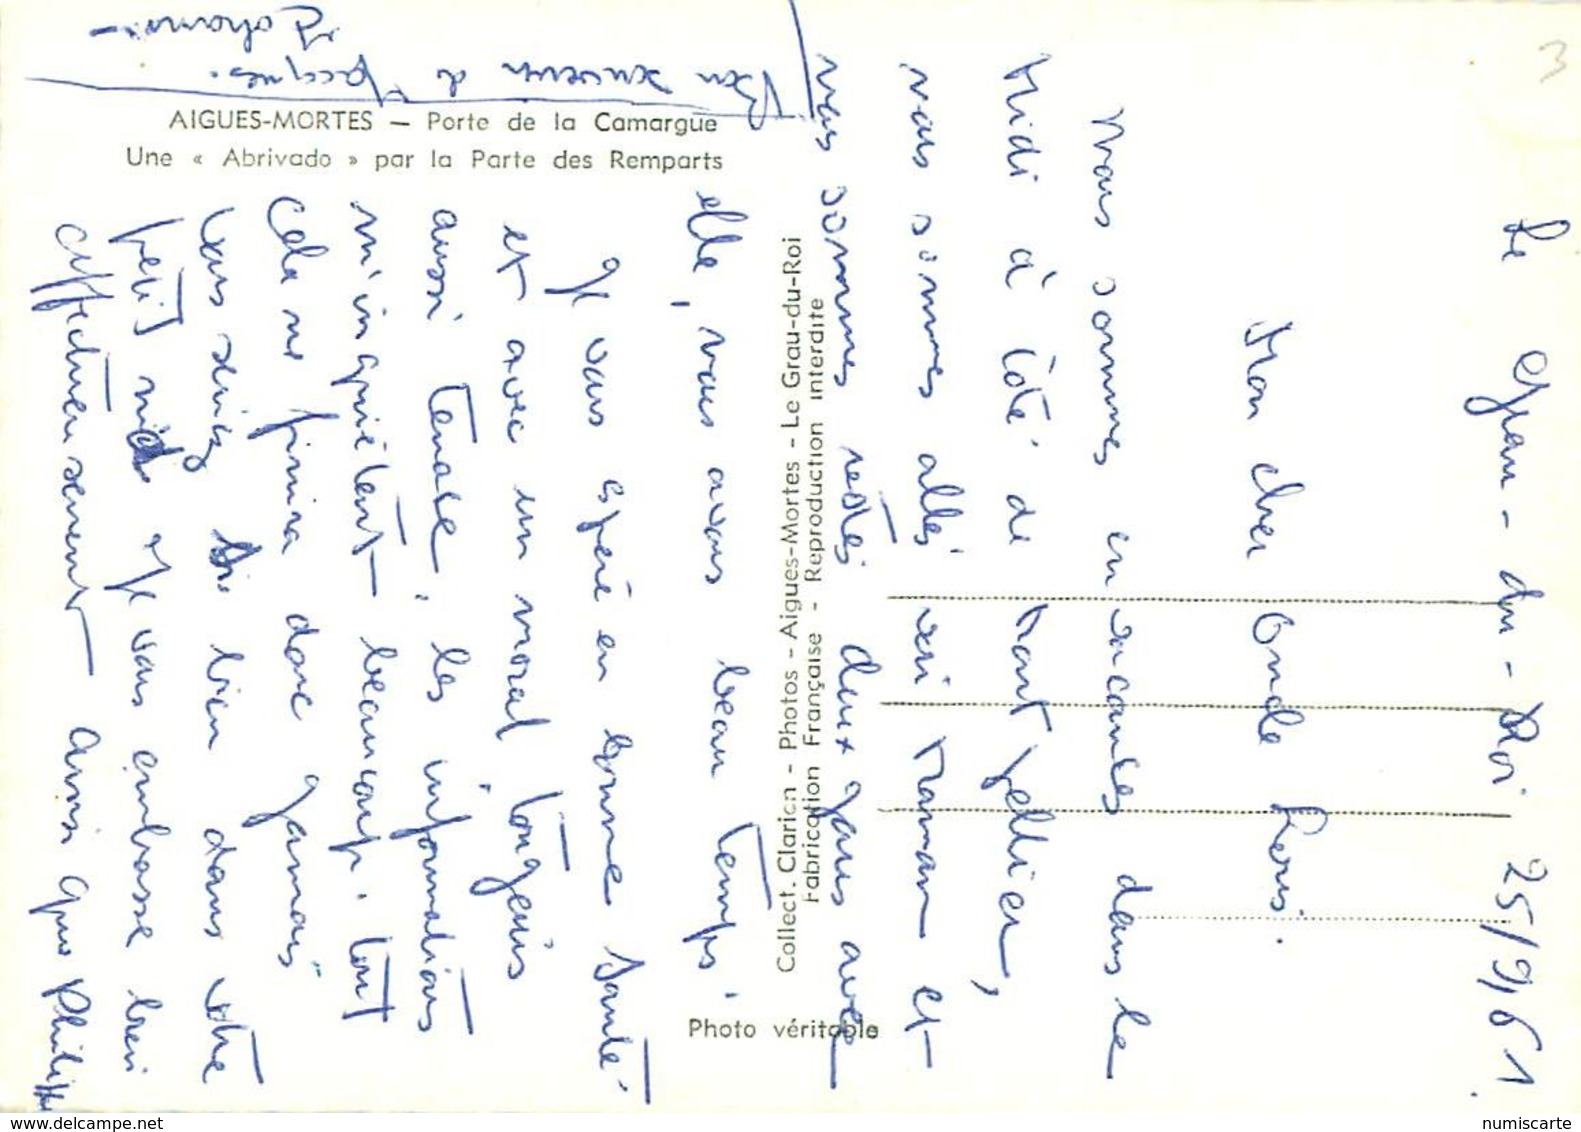 Le Grau-du-Roi 25/9/61.
Mon cher Oncle Louis.
Nous sommes en vacances dans le
Midi à côté de Montpellier,
nous sommes allés voir Maman et
nous sommes restés deux jours avec
elle, nous avons beau temps.
Je vous espère en bonne santé
et avec un moral toujours
aussi tenace, les informations
m'inquiètent beaucoup, tout
cela ne finira donc jamais
vous seriez si bien dans votre
petit nid. Je vous embrasse bien
affectueusement ainsi que Philippe
Bon souvenir de Jacques.
AIGUES-MORTES — Porte de la Camargue
Une « Abrivado » par la Parte des Remparts
Collect. Claricn - Photos - Aigues-Mortes - Le Grau-du-Roi
Fabrication Française - Reproduction interdite
Photo véritable
3
numiscarte